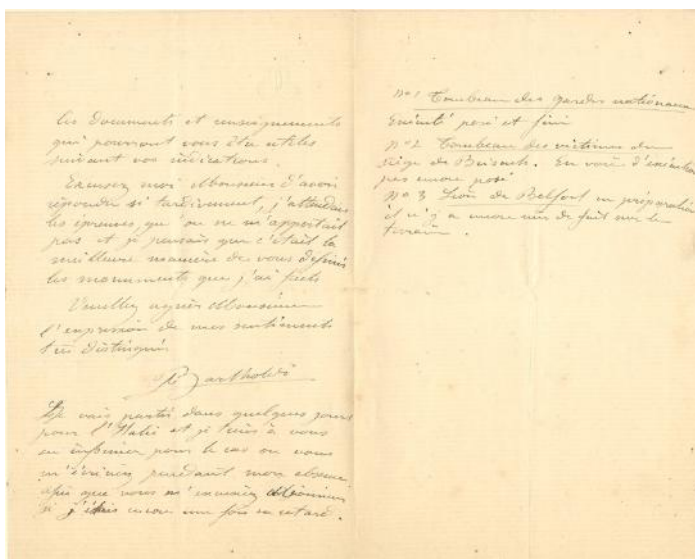 les documents et renseignements
qui pourront vous être utiles
suivant vos indications.
Excusez moi Monsieur d'avoir
répondu si tardivement, j'attendais
les épreuves qu'on ne m'apportait
pas et je pensais que c'était la
meilleure manière de vous définir
les monuments que j'ai faits
Veuillez agréer Monsieur
l'expression de mes sentiments
très distingués
Bartholdi
Je vais partir dans quelques jours
pour l'Italie et je tiens à vous
en informer pour le cas où vous
m'écririez pendant mon absence
afin que vous m'excusiez Monsieur
si j'étais encore une fois en retard.
No 1 Tombeau des gardes nationaux
Exécuté posé et fini
No 2 Tombeau des victimes du
siège de Brisach. En voie d'exécution
pas encore posé
No 3 Lion de Belfort en préparation
il n'y a encore rien de fait sur le
terrain.